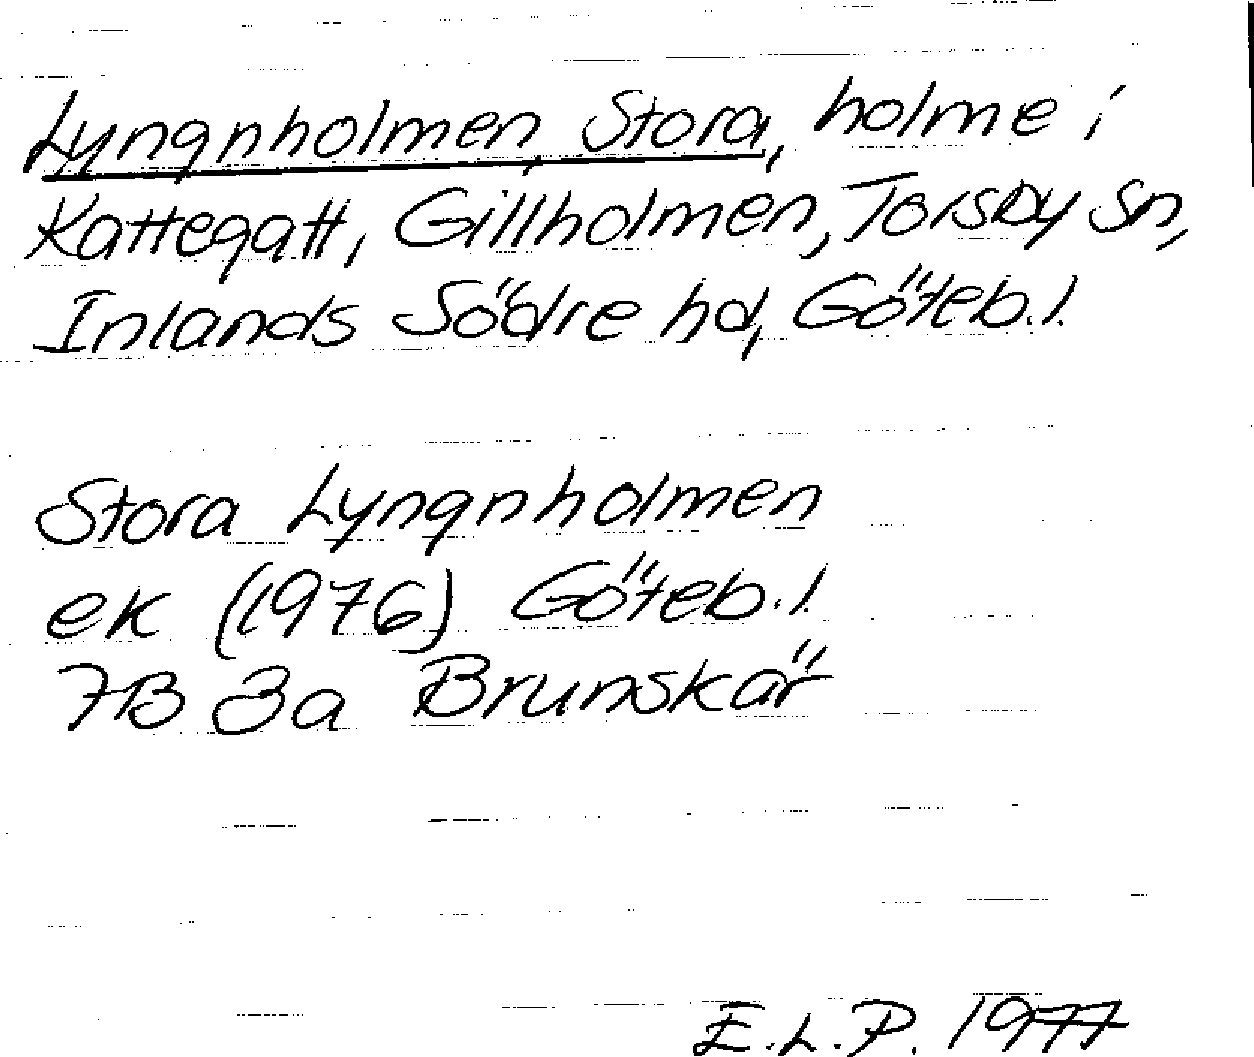 Lyngnholmen, Stora, holme i
Kattegatt, Gillholmen, Torsby Sn,
Inlands Södre hd, Göteb.l.
Stora Lyngnholmen
ek (1976) Göteb.l.
7B 3a Brunskär
E.L.P. 1977